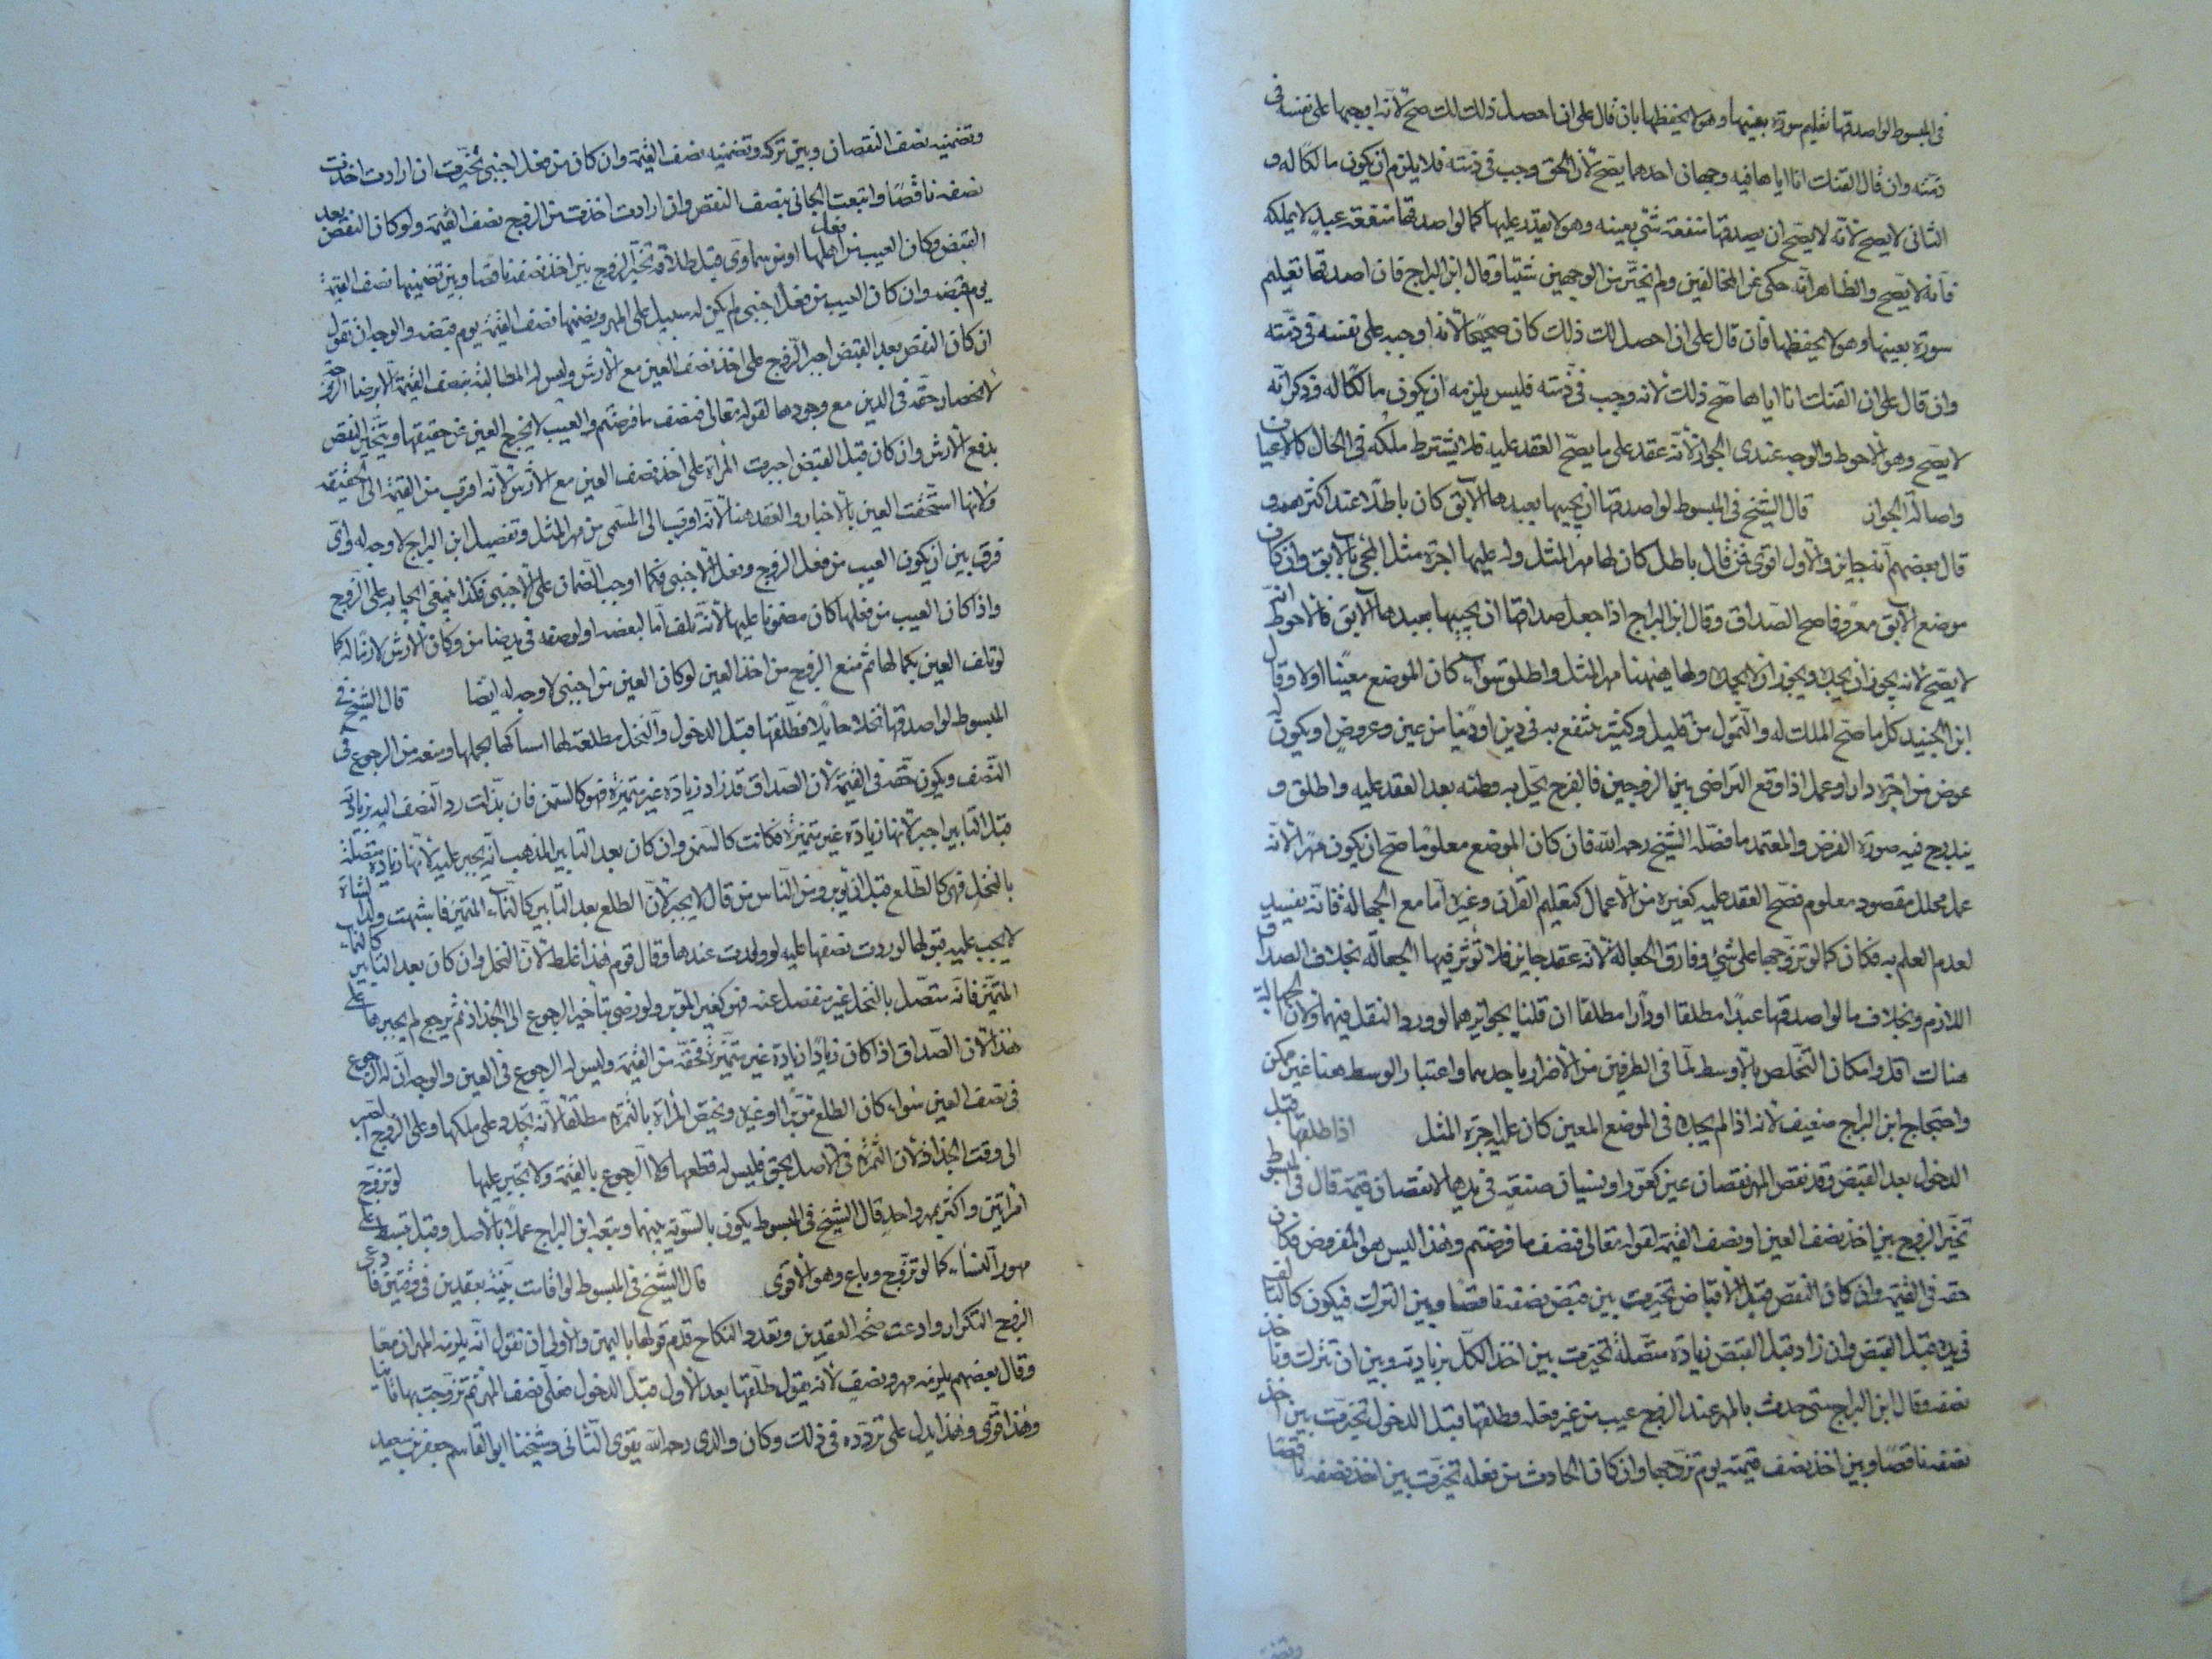 فى المبسوط لو اصدقها تعليم سورة بعينها وهو لا يحفظها بان قال على ان احصل ذلك لك صح لانه اوجبها على نفسه فى
ذمته وان قال القنك انا اياها فيه وجهان احدهما يصح لان الحق وجب فى ذمته فلا يلزم ان يكون مالكا له و
الثانى لا يصح لانه لا يصح ان يصدقها منفعة شئ بعينه وهو لا يقدر عليها كما لو اصدقها منفعة عبد لا يملكه
فانه لا يصح والظاهر انه حكى عن المخالفين ولم يتخير من الوجهين شيئا وقال ابن البراج فان اصدقها تعليم
سورة بعينها وهو لا يحفظها فان قال على ان احصل لك ذلك كان صحيحا لانه اوجبه على نفسه فى ذمته
وان قال على ان القنك انا اياها صح ذلك لانه وجب فى ذمته فليس يلزمه ان يكون مالكا له وذكر انه
لا يصح وهو الاحوط والوجه عندى الجواز لانه عقد على ما يصح العقد عليه فلا يشترط ملكه فى الحال كالاعيان
واصالة الجواز قال الشيخ فى المبسوط لو اصدقها ان يجيبها بعبدها الآبق كان باطلا عند اكثرهم و
قال بعضهم انه جايز والاول اقوى فمن قال باطل كان لها مهر المثل وله عليها اجرة مثل المجئ بالابق وان كان
موضع الآبق معروفا صح الصداق وقال ابن البراج اذا جعل صداقها ان يجيبها بعبدها الآبق فالاحوط انه
لا يصح لانه يجوز ان يجده ويجوز ان لا يجده ولها هيهنا مهر المثل واطلق سواء كان الموضع معينا اولا وقال
ابن الجنيد كل ما صح الملك له والتمول من قليل وكثير ينتفع به فى دين او دنيا من عين وعروض او يكون له
عوض من اجرة دار او عمل اذا وقع التراضى بين الزوجين فالفرج يحل به وطئه بعد العقد عليه واطلق و
يندرج فيه صورة الفرض والمعتمد ما فصله الشيخ رحمه الله فان كان الموضع معلوما صح ان يكون مهرا لانه
عمل محلل مقصود معلوم فصح العقد عليه كغيره من الاعمال كتعليم القرآن وغيره اما مع الجهالة فانه يفسد
لعدم العلم به فكان كما لو تزوجها على شئ وفارق الجعالة لانه عقد جايز فلا تؤثر فيها الجهالة بخلاف الصداق
اللازم وبخلاف ما لو اصدقها عبدا مطلقا او دارا مطلقا ان قلنا بجوازهما لورود النقل فيهما ولان الجهالة
هناك اقل وامكان التخلص بالاوسط لما فى الطرفين من الاضرار باحدهما واعتبار الوسط هنا غير ممكن
واحتجاج ابن البراج ضعيف لانه اذا لم يجده فى الموضع المعين كان عليه اجرة المثل اذا طلقها قبل
الدخول بعد القبض وقد نقص المهر نقصان عين كعور او نسيان صنعة فى يدها لا نقصان قيمة قال فى المبسوط
تخير الزوج بين اخذ نصف العين او نصف القيمة لقوله تعالى فنصف ما فرضتم وهذا ليس هو المفروض فكان
حقه فى القيمة وان كان النقص قبل الاقباض تخيرت بين قبض نصفه ناقصا وبين الترك فيكون كالتالف
فى يده قبل القبض وان زاد قبل القبض زيادة متصلة تخيرت بين اخذ الكل بزيادته وبين ان تترك وتأخذ
نصفه وقال ابن البراج متى حدث بالمهر عند الزوج عيب من غير فعله وطلقها قبل الدخول تخيرت بين اخذ
نصفه ناقصا وبين اخذ نصف قيمته يوم تزوجها وان كان الحادث من فعله تخيرت بين اخذ نصفه ناقصا
وتضمينه نصف النقصان وبين تركه وتضمينه نصف القيمة وان كان من فعل اجنبى تخيرت ان ارادت اخذت
نصفه ناقصا واتبعت الجانى بنصف النقص وان ارادت اخذت من الزوج نصف القيمة ولو كان النقص بعد
القبض وكان العيب من فعلها او من سماوى قبل طلاقه تخير الزوج بين اخذ نصفه ناقصا وبين تضمينها نصف القيمة
يوم قبضه وان كان العيب من فعل اجنبى لم يكن له سبيل على المهر ويضمنها نصف القيمة يوم قبضه والوجه ان نقول
ان كان النقص بعد القبض اجبر الزوج على اخذ نصف العين مع الارش وليس له المطالبة بنصف القيمة الا برضا الزوجة
لانحصار حقه فى العين مع وجودها لقوله تعالى فنصف ما فرضتم والعيب لا يخرج العين عن حقيقتها وينجبر النقص
بدفع الارش وان كان قبل القبض اجبرت المرأة على اخذ نصف العين مع الارش لانه اقرب من القيمة الى الحقيقة
ولانها استحقت العين بالاختيار والعقد هنا لانه اقرب الى المسمى من مهر المثل وتفصيل ابن البراج لا وجه له واى
فرق بين ان يكون العيب من فعل الزوج وفعل الاجنبى فكما اوجب الضمان على الاجنبى فكذا ينبغى ايجابه على الزوج
واذا كان العيب من فعلها كان مضمونا عليها لانه تلف اما لبعضه او لوصفه فى يد ضامن وكان الارش لازما له كما
لو تلف العين بكمالها ثم منع الزوج من اخذ العين لو كان العين من اجنبى لا وجه له ايضا قال الشيخ فى
المبسوط لو اصدقها نخلا حايلا فطلقها قبل الدخول والنخل مطلعة لها امساكها بحملها ومنعه من الرجوع فى
النصف ويكون حقه فى القيمة لان الصداق قد زاد زيادة غير متميزة فهو كالسمن فان بذلت رد النصف اليه بزيادته
قبل التأبير اجبر لانها زيادة غير متميزة فكانت كالسمن وان كان بعد التأبير المذهب انه يجبر عليه لانها زيادة متصلة
بالنخل فهو كالطلع قبل ان يؤبر ومن الناس من قال لا يجبر لان الطلع بعد التأبير كالنماء المتميز فاشبهت ولد الشاة
لا يجب عليه قبولها لو ردت نصفها عليه لو ولدت عندها وقال قوم هذا غلط لان النخل وان كان بعد التأبير كالنماء
المتميز فانه متصل بالنخل غير منفصل عنه فهو كغير المؤبر ولو رضى بتأخير الرجوع الى الجذاذ ثم يرجع لم يجبرها على
هذا لان الصداق اذا كان زايدا زيادة غير متميزة فحقه من القيمة وليس له الرجوع فى العين والوجه ان له الرجوع
فى نصف العين سواء كان الطلع مؤبرا او غيره وتختص المرأة بالثمرة مطلقا لانه تجدد على ملكها وعلى الزوج الصبر
الى وقت الجذاذ لان الثمرة فى الاصل بحق فليس له قطعها ولا الرجوع بالقيمة ولا يجبر عليها لو تزوج
امرأتين واكثر بمهر واحد قال الشيخ فى المبسوط يكون بالسوية بينهما وتبعه ابن البراج عملا بالاصل وقيل قسط على
مهور النساء كما لو تزوج وباع وهو الاقوى قال الشيخ فى المبسوط لو اقامت بينة بعقدين فى وقتين فادعى
الزوج التكرار وادعت صحة العقدين وتعدد النكاح قدم قولها باليمين والاولى ان نقول انه يلزمه المهران معا
وقال بعضهم يلزمه مهر ونصف لانه يقول طلقتها بعد الاول قبل الدخول فعلى نصف المهر ثم تزوجت بها ثانيا
وهذا قوى وهذا يدل على تردده فى ذلك وكان والدى رحمه الله يقوى الثانى وشيخنا ابو القاسم جعفر بن سعيد